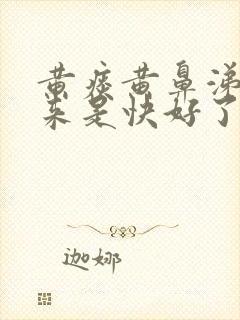 黄痰黄鼻涕
来是快好了
迦娜